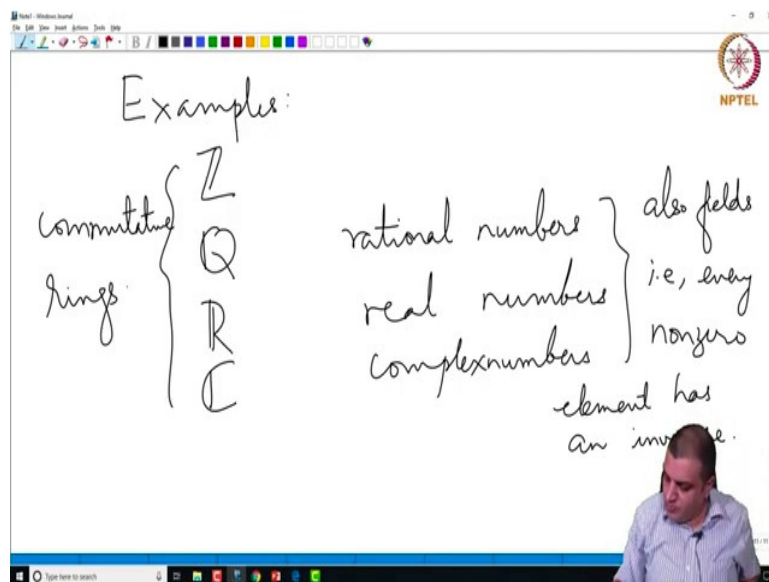 Note1 - Windows Journal
File Edit View Insert Actions Tools Help
NPTEL
Examples:
commutative
rings.
ℤ
ℚ
ℝ
ℂ
rational numbers
real numbers
complexnumbers
also fields
i.e, every
nonzero
element has
an
Type here to search